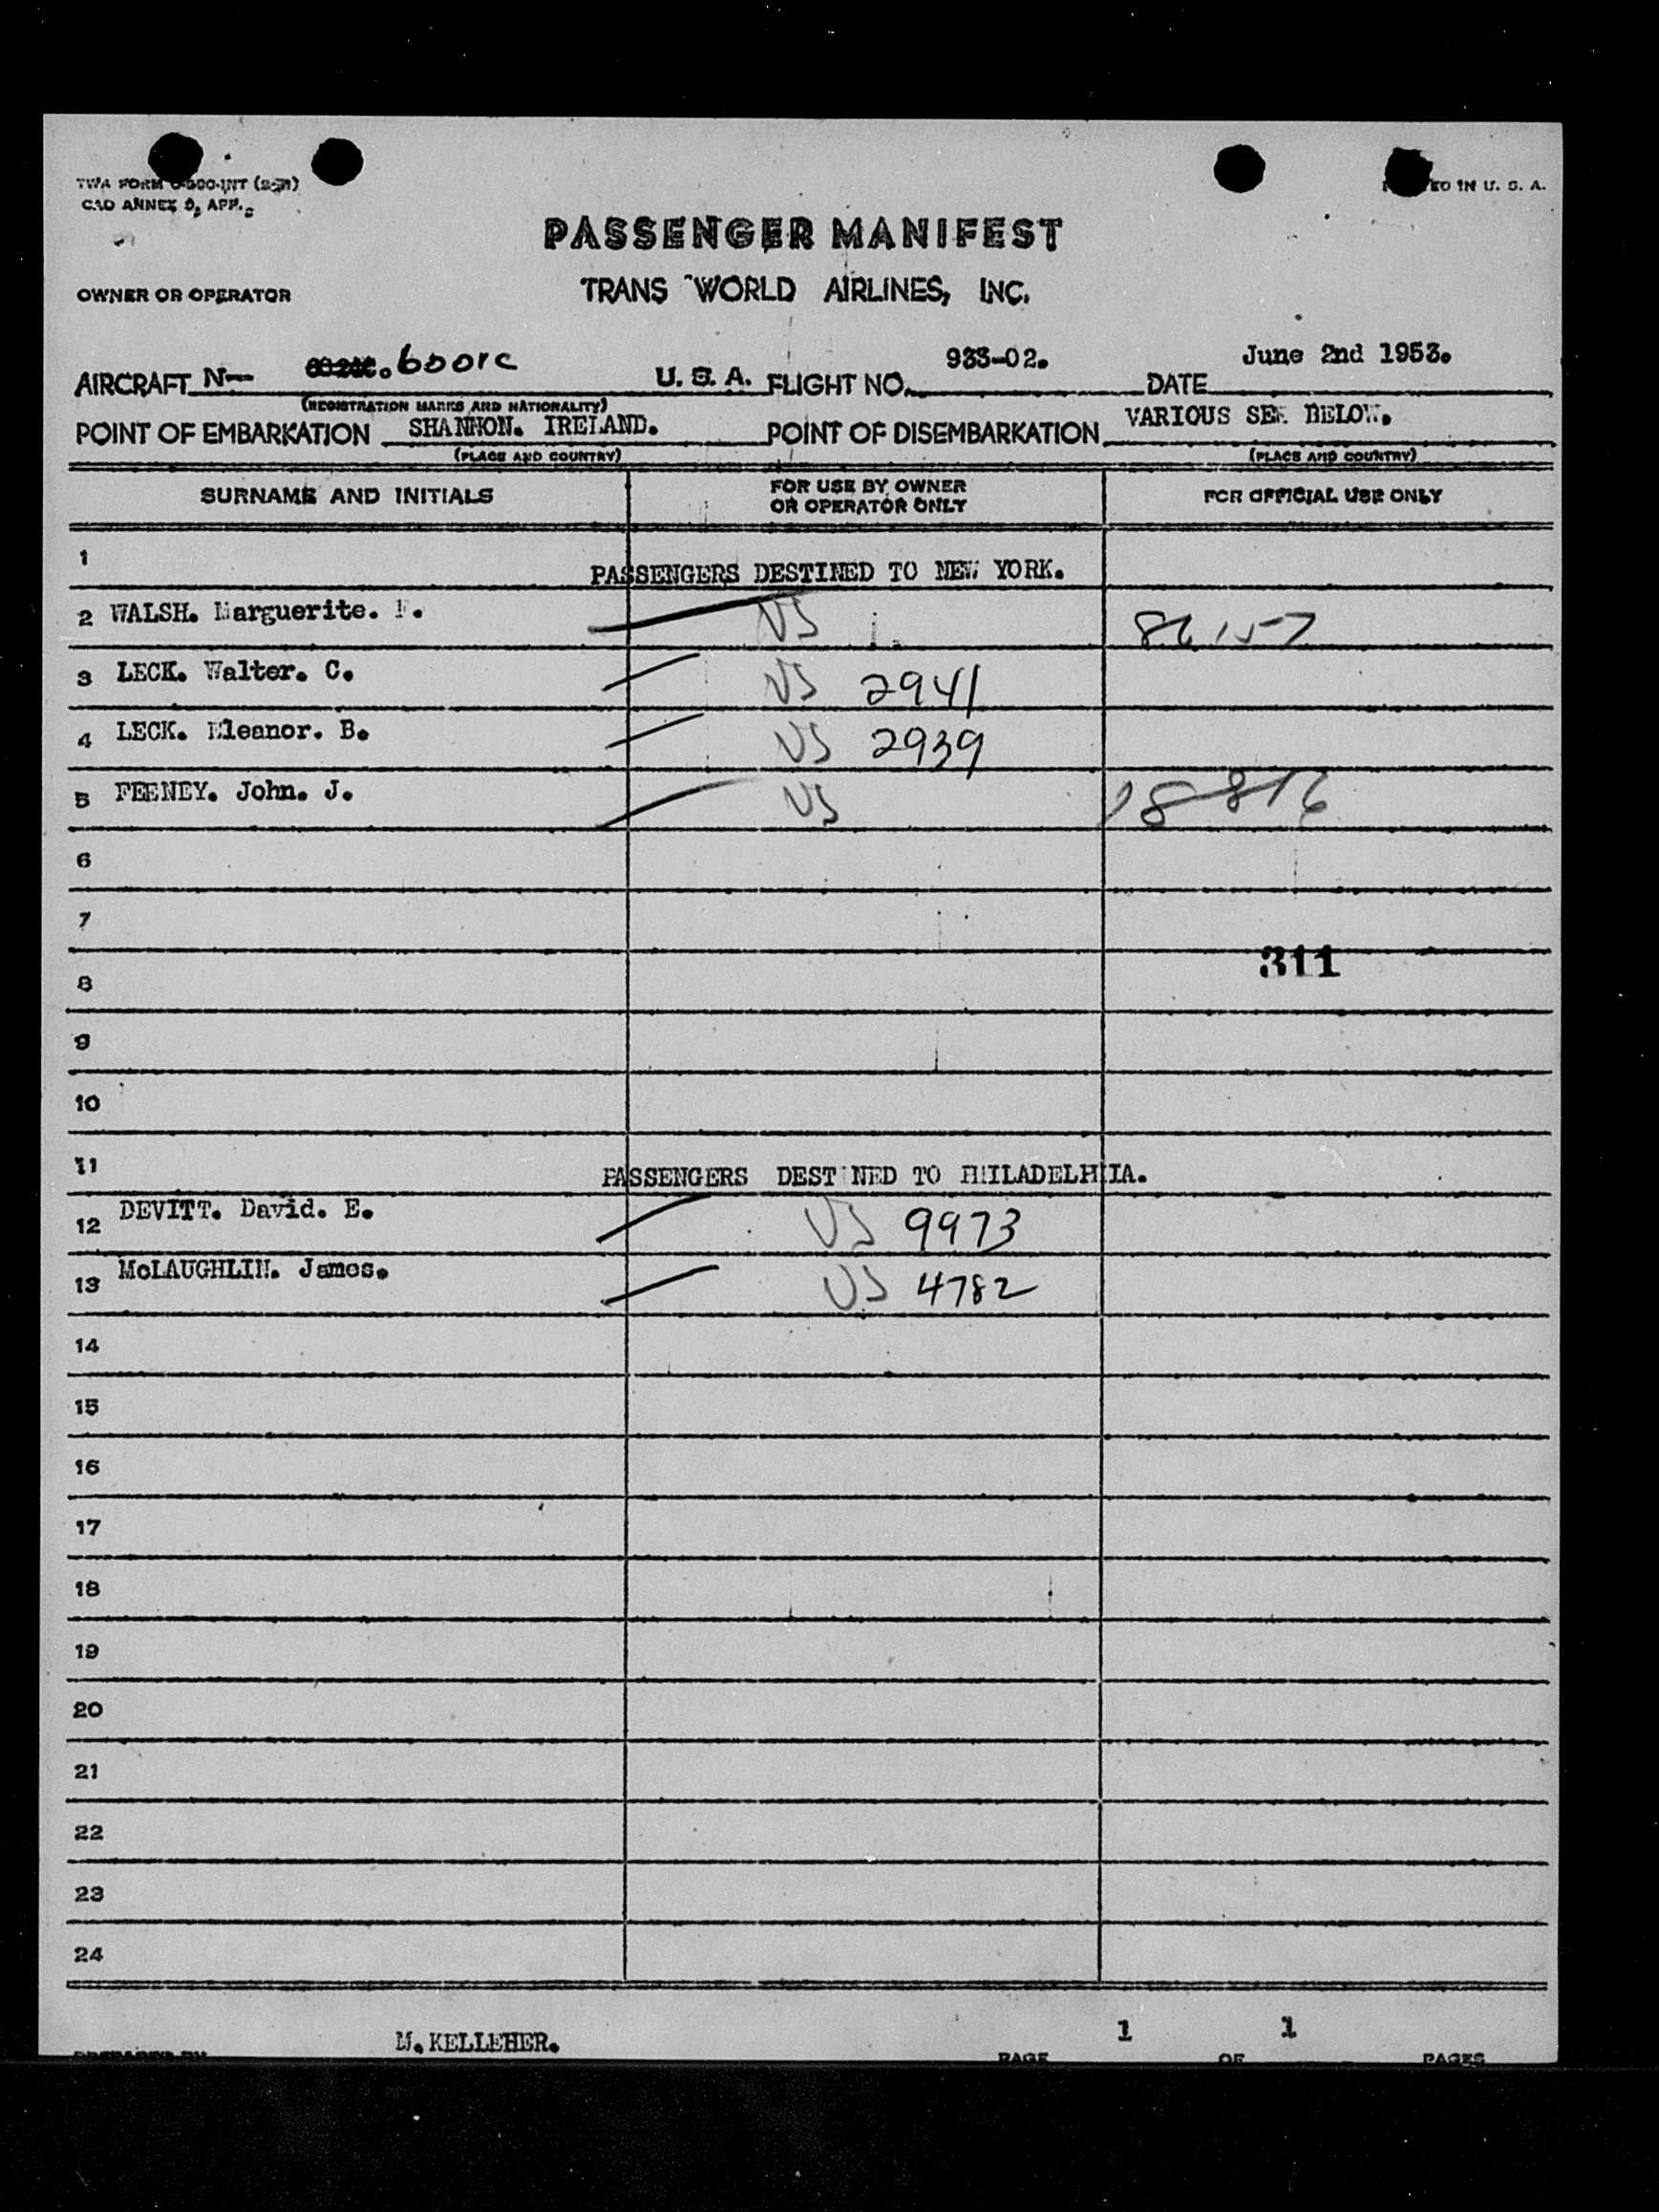 TWA FORM
CAO ANNEX 9, APP.
IN U. S. A.
PASSENGER MANIFEST
OWNER OR OPERATOR
TRANS WORLD AIRLINES, INC.
AIRCRAFT N— 6001C U. S. A. FLIGHT NO. 933-02. DATE June 2nd 1953.
(REGISTRATION MARKS AND NATIONALITY)
POINT OF EMBARKATION SHANNON. IRELAND. POINT OF DISEMBARKATION VARIOUS SEE BELOW.
(PLACE AND COUNTRY) (PLACE AND COUNTRY)
SURNAME AND INITIALS
FOR USE BY OWNER
OR OPERATOR ONLY
FOR OFFICIAL USE ONLY
1 PASSENGERS DESTINED TO NEW YORK.
2 WALSH. Marguerite. US
3 LECK. Walter. C. US 2941
4 LECK. Eleanor. B. US 2939
5 FEENEY. John. J. US 18816
6
7
311
8
9
10
11 PASSENGERS DESTINED TO PHILADELHIA.
12 DEVITT. David. E. US 9973
13 McLAUGHLIN. James. US 4782
14
15
16
17
18
19
20
21
22
23
24
M. KELLEHER. 1 1
PREPARED BY PAGE OF PAGES